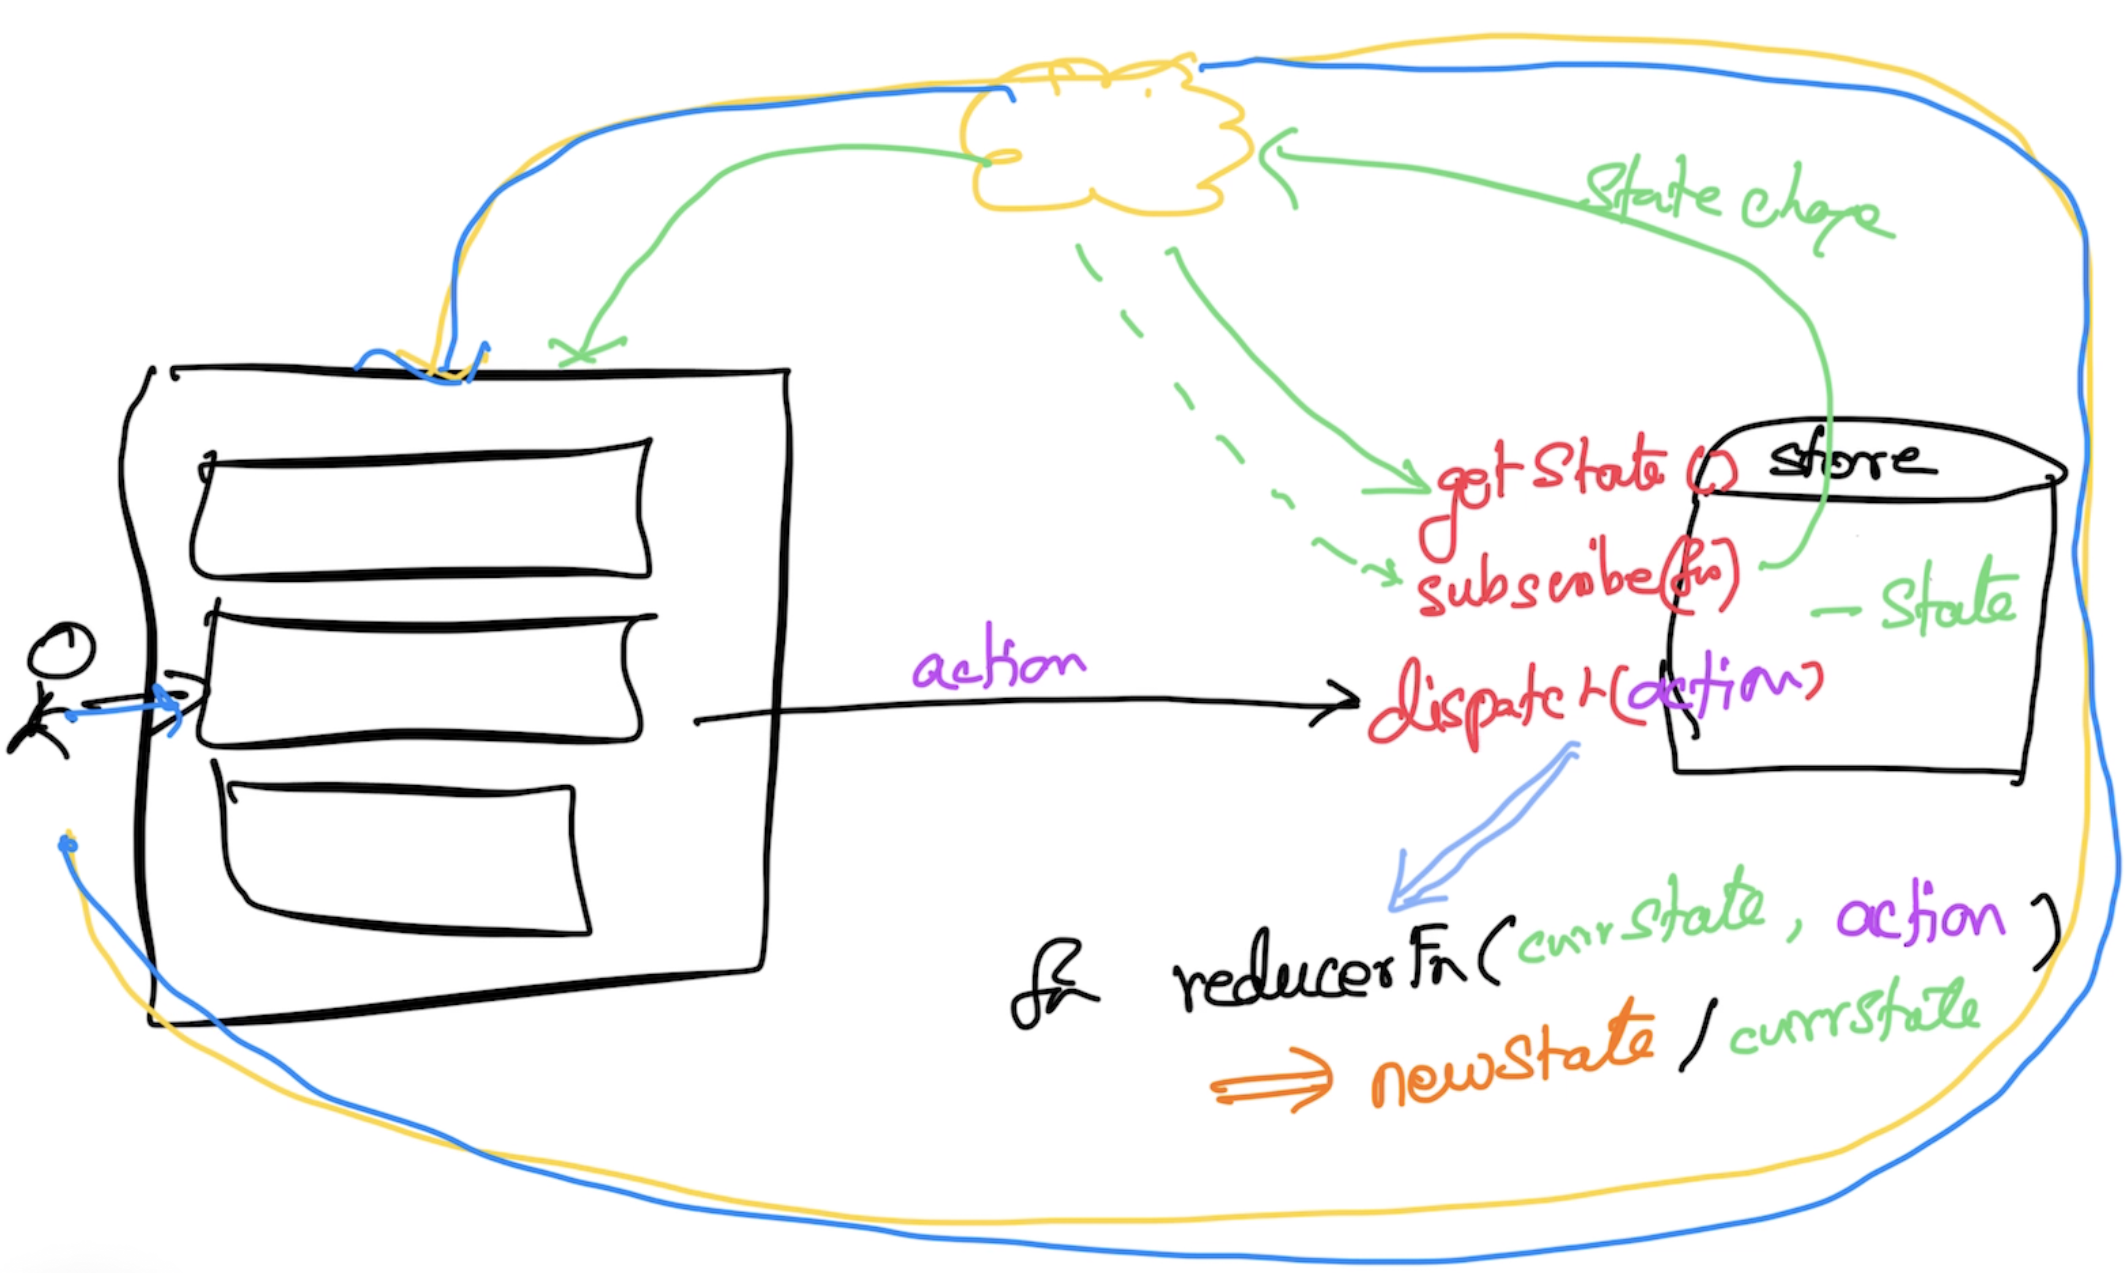 State change
store
getState ()
subscribe(fn)
- State
action
dispatch(action)
fn reducerFn(currState, action)
⇒ newState / currState